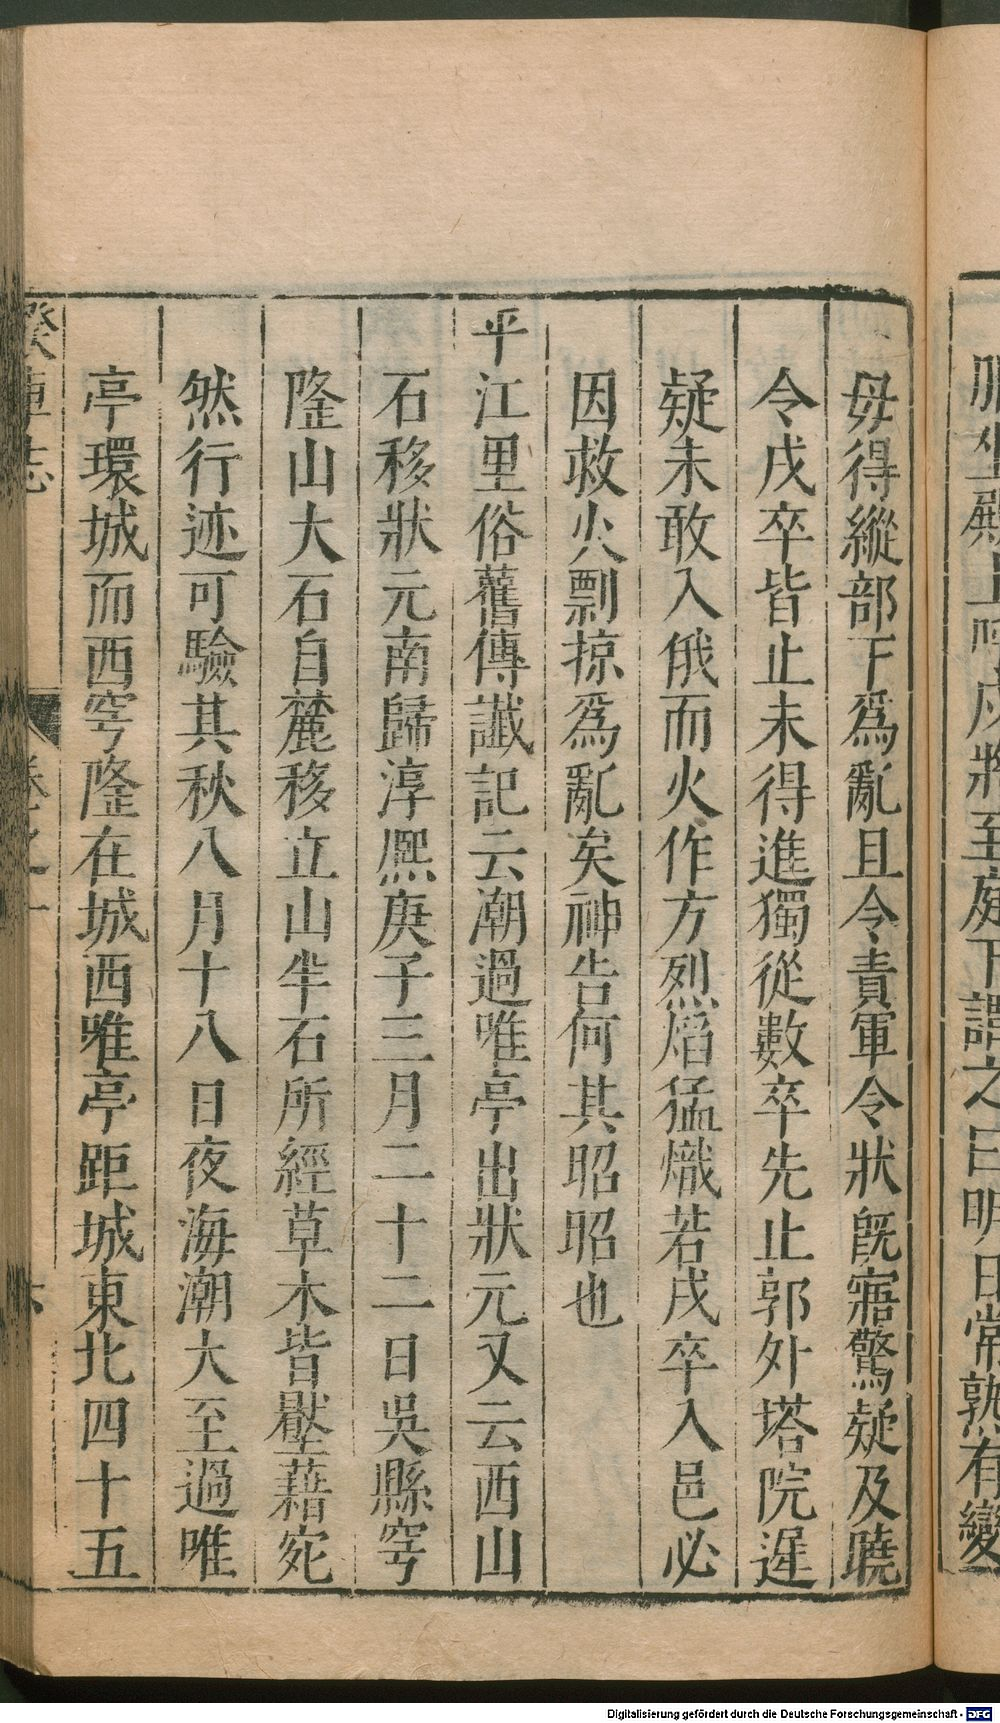 鵬坐殿上呼戍將至庭下謂之曰明日常熟有變
毋得縱部下爲亂且令責軍令狀旣寤驚疑及曉
令戍卒皆止未得進獨從數卒先止郭外塔院遲
疑未敢入俄而火作方烈熖猛熾若戍卒入邑必
因救火剽掠爲亂矣神告何其昭昭也
平江里俗舊傳讖記云潮過唯亭出狀元又云西山
石移狀元南歸淳熈庚子三月二十二日吳縣穹
隆山大石自麓移立山半石所經草木皆壓藉宛
然行迹可驗其秋八月十八日夜海潮大至過唯
亭環城而西穹隆在城西唯亭距城東北四十五
睽車志
卷之一
六
Digitalisierung gefördert durch die Deutsche Forschungsgemeinschaft - DFG